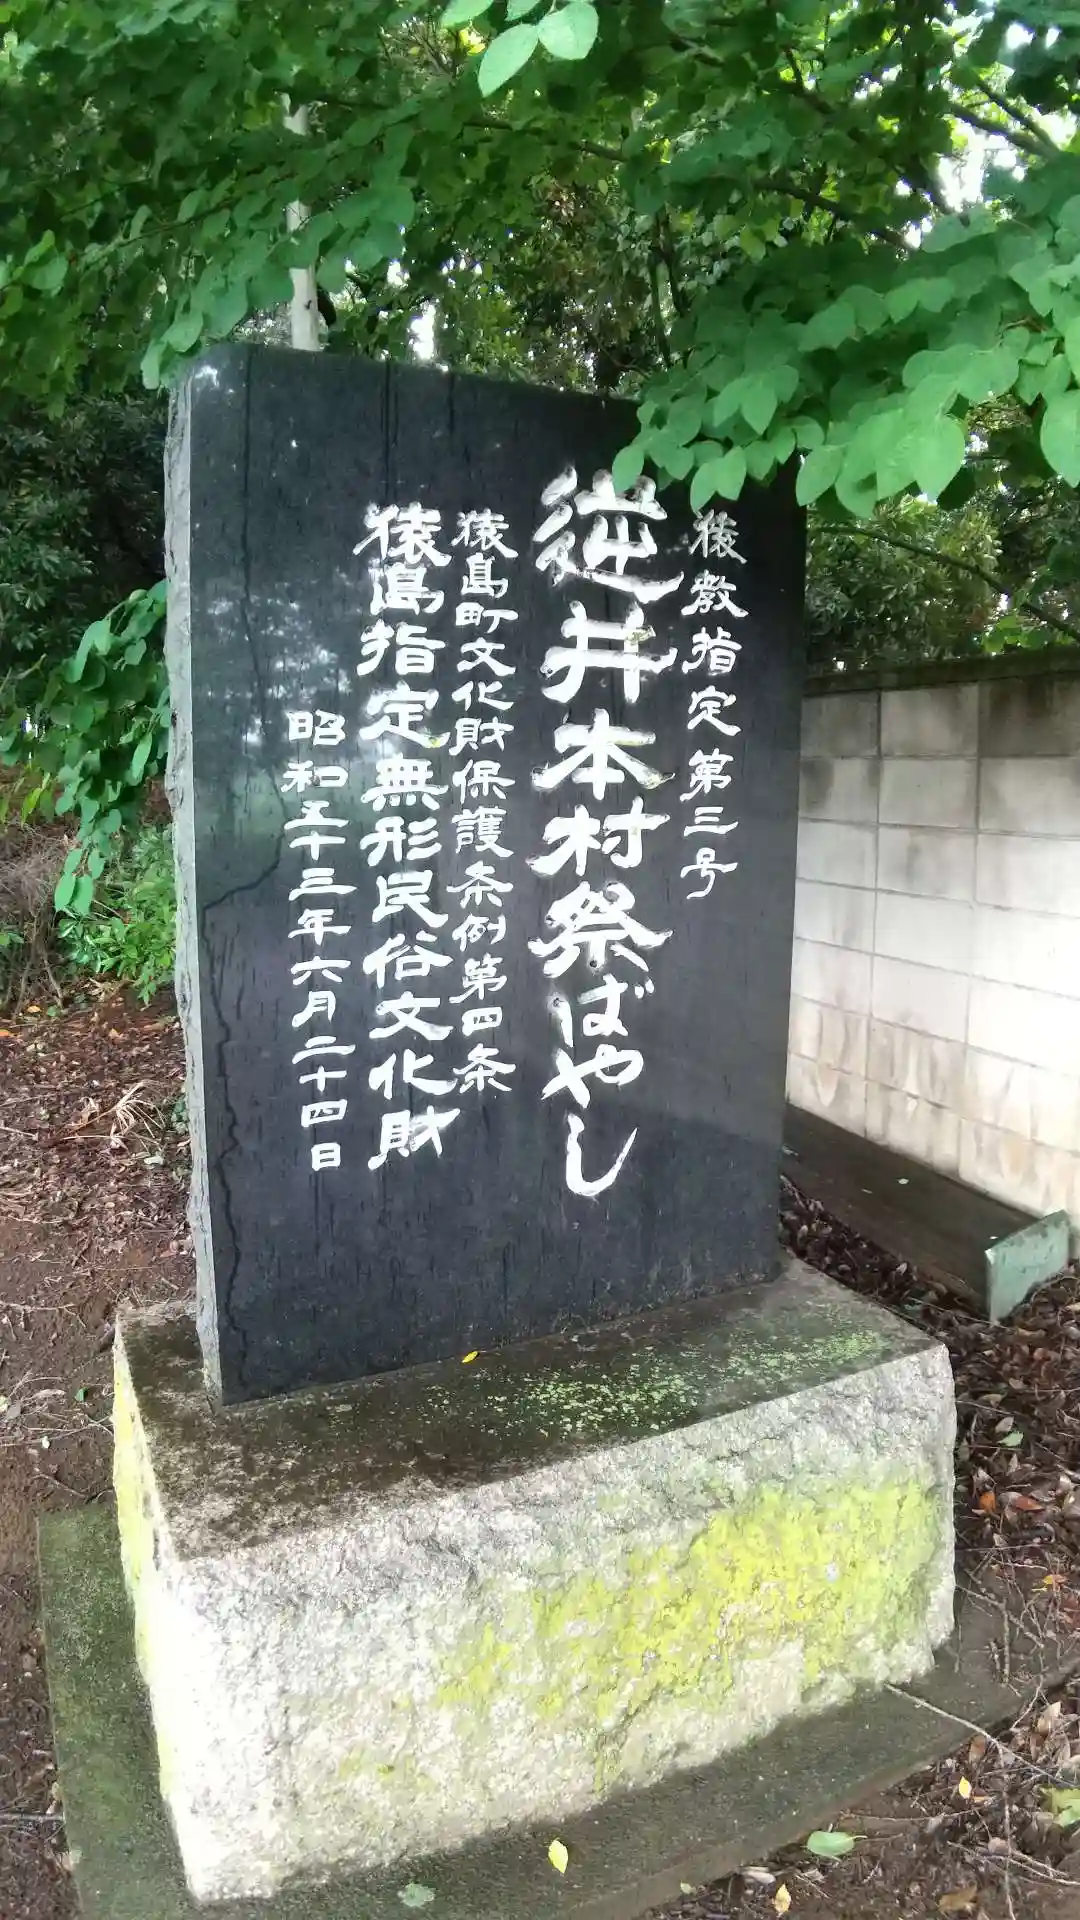 猿教指定第三号
逆井本村祭ばやし
猿島町文化財保護条例第四条
猿島指定無形民俗文化財
昭和五十三年六月二十四日